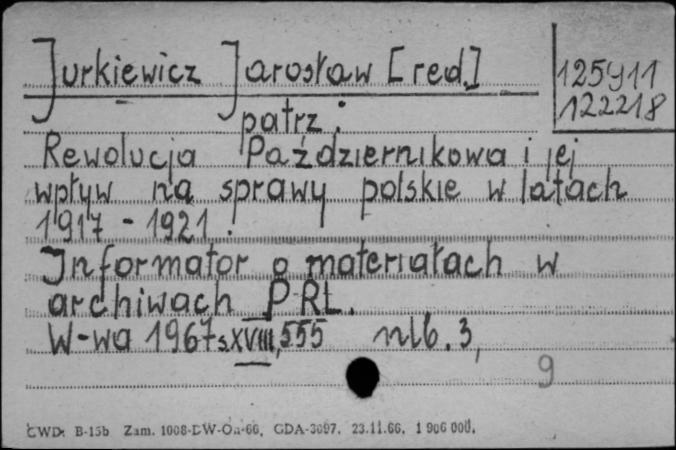 Jurkiewicz Jarosław [red.]
125911
122218
patrz:
Rewolucja Październikowa i jej
wpływ na sprawy polskie w latach
1917 - 1921.
Informator o materiałach w
archiwach PRL.
W-wa 1967 s XVIII, 555 nlb. 3,
9
CWD: B-15b Zam. 1008-DW-On-66, GDA-3097. 23.11.66. 1 906 000.